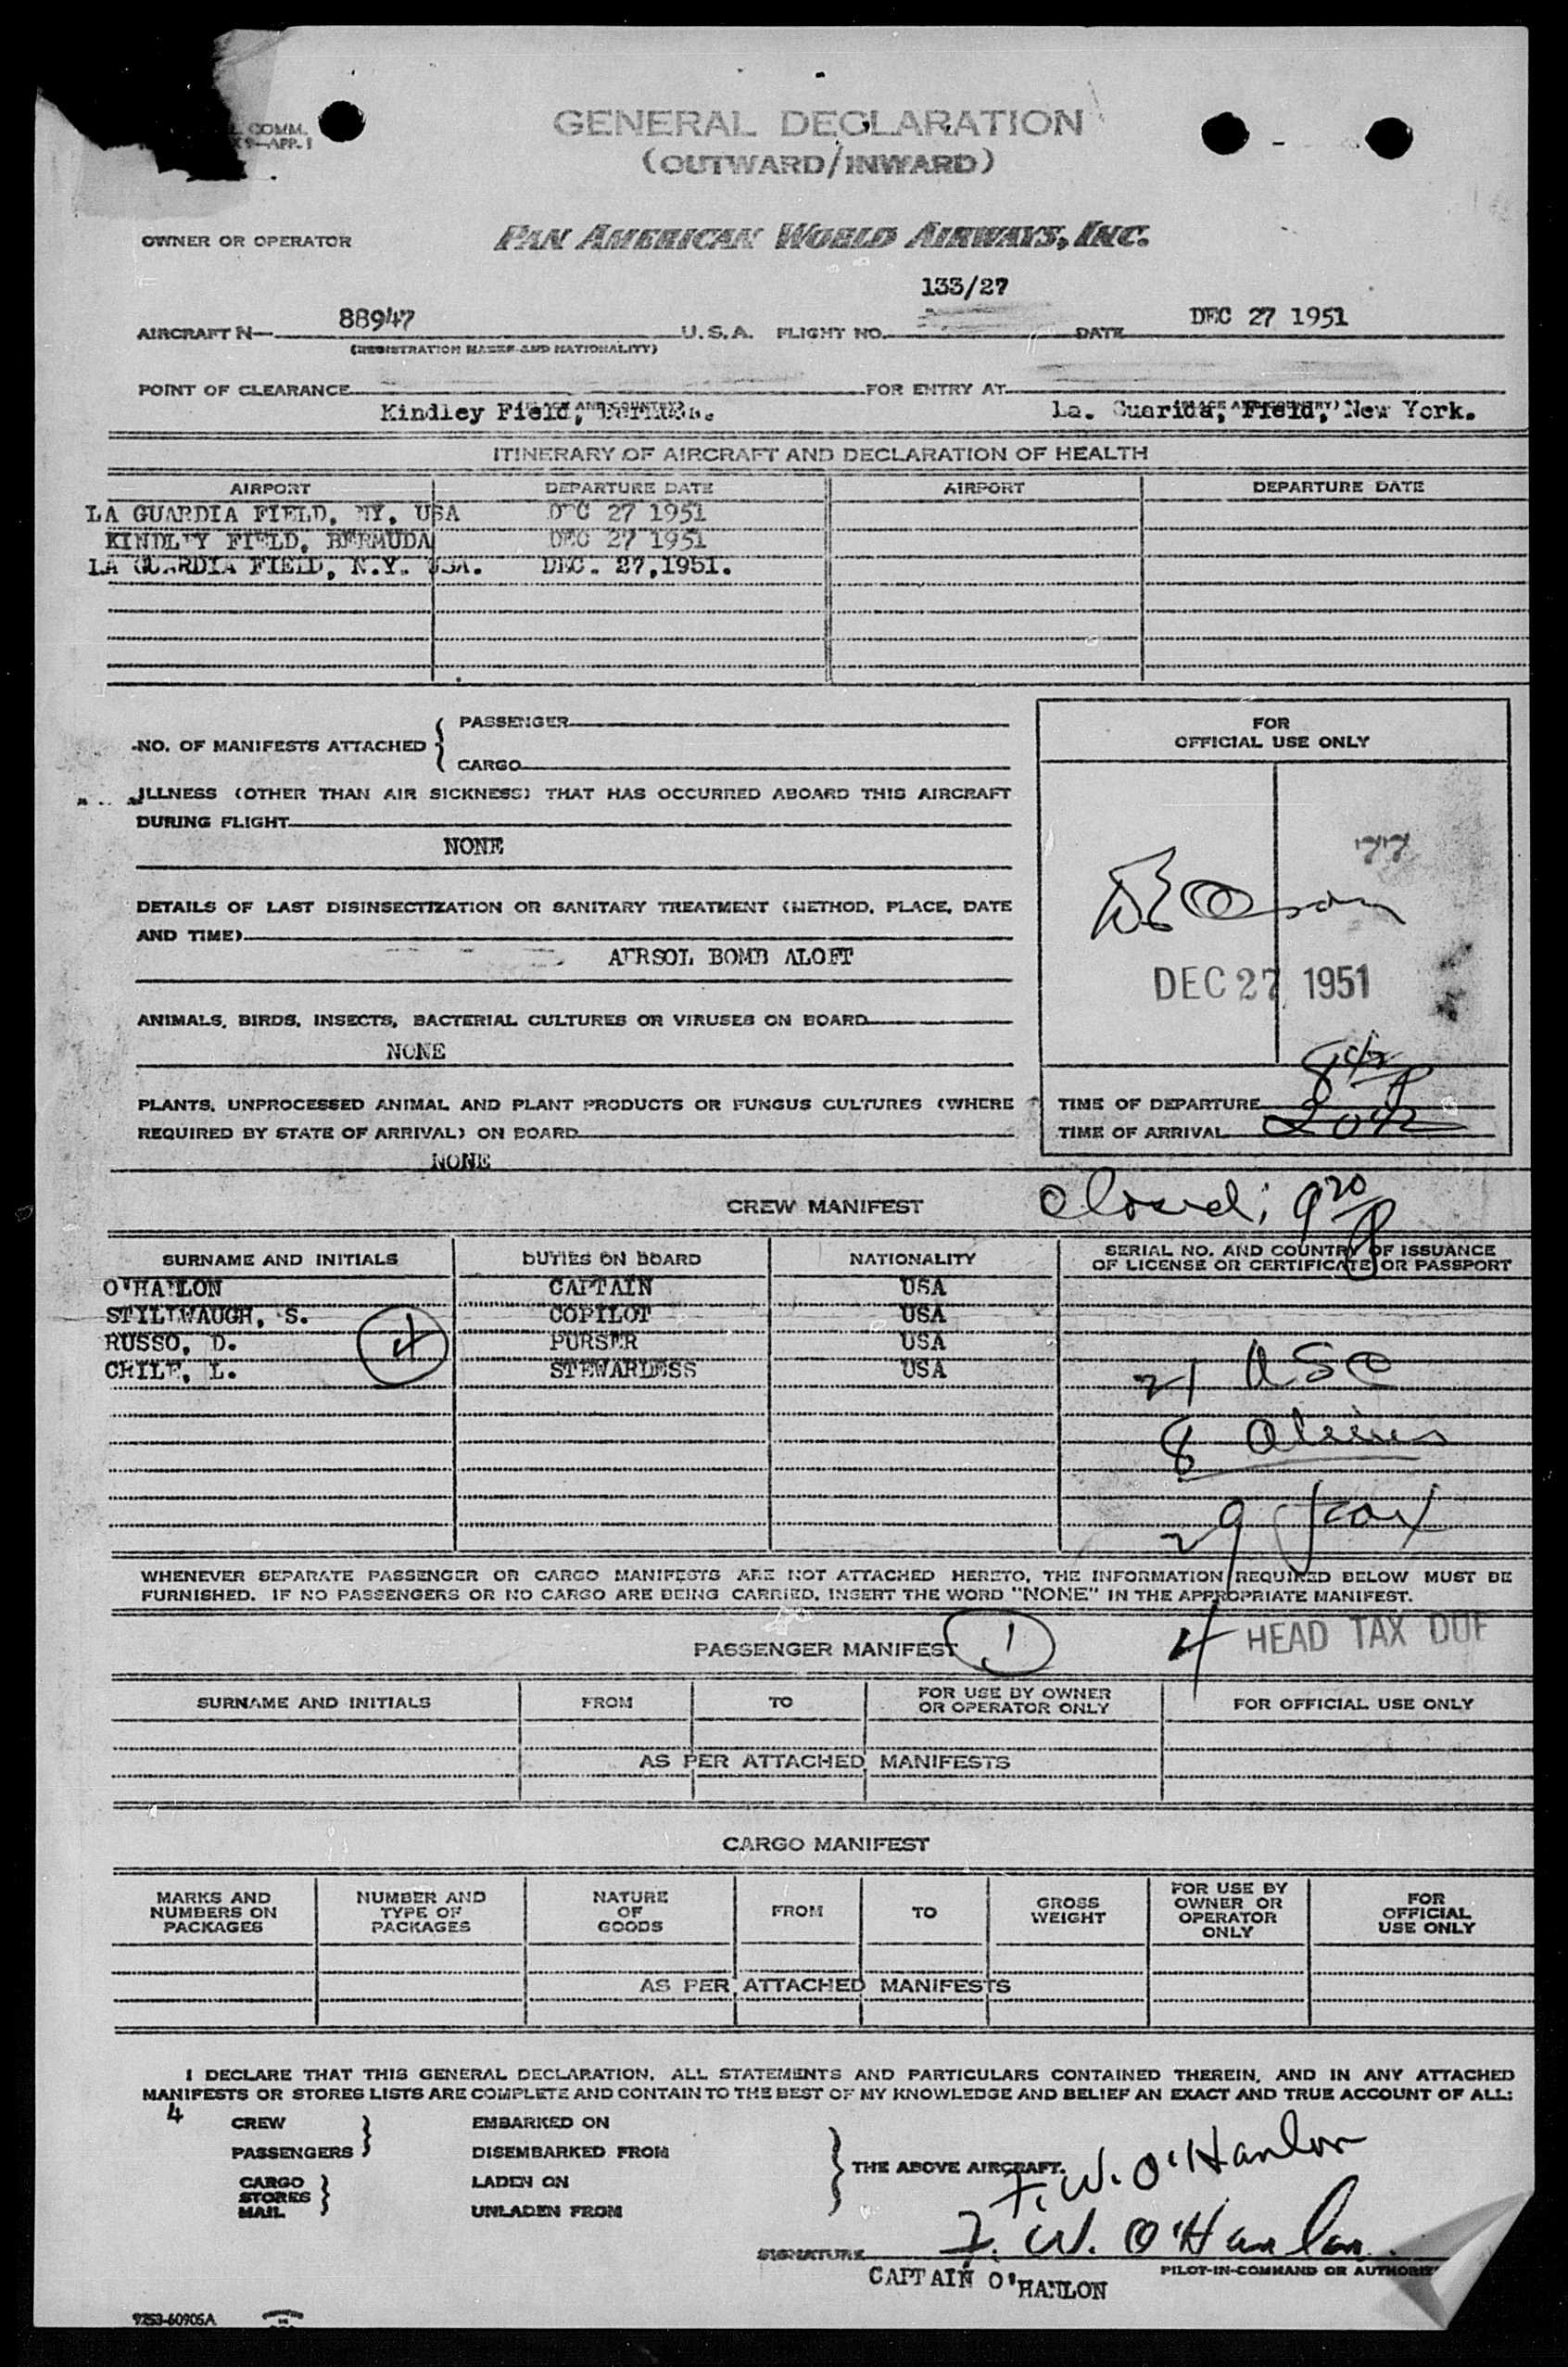 L COMM.
9-APP. 1
GENERAL DECLARATION
(OUTWARD/INWARD)
OWNER OR OPERATOR PAN AMERICAN WORLD AIRWAYS, INC.
133/27
AIRCRAFT N- 88947 U.S.A. FLIGHT NO. DATE DEC 27 1951
(REGISTRATION MARKS AND NATIONALITY)
POINT OF CLEARANCE FOR ENTRY AT
Kindley Field, La. Guarida, Field, New York.
ITINERARY OF AIRCRAFT AND DECLARATION OF HEALTH
AIRPORT DEPARTURE DATE AIRPORT DEPARTURE DATE
LA GUARDIA FIELD, NY, USA DEC 27 1951
KINDLEY FIELD, BERMUDA DEC 27 1951
LA GUARDIA FIELD, N.Y. USA. DEC. 27,1951.
NO. OF MANIFESTS ATTACHED { PASSENGER
CARGO
ILLNESS (OTHER THAN AIR SICKNESS) THAT HAS OCCURRED ABOARD THIS AIRCRAFT
DURING FLIGHT
NONE
DETAILS OF LAST DISINSECTIZATION OR SANITARY TREATMENT (METHOD, PLACE, DATE
AND TIME)
AERSOL BOMB ALOFT
ANIMALS, BIRDS, INSECTS, BACTERIAL CULTURES OR VIRUSES ON BOARD
NONE
PLANTS, UNPROCESSED ANIMAL AND PLANT PRODUCTS OR FUNGUS CULTURES (WHERE
REQUIRED BY STATE OF ARRIVAL) ON BOARD
NONE
FOR
OFFICIAL USE ONLY
77
DEC 27 1951
TIME OF DEPARTURE
TIME OF ARRIVAL
CREW MANIFEST
Closed; 9 20 P
SURNAME AND INITIALS DUTIES ON BOARD NATIONALITY SERIAL NO. AND COUNTRY OF ISSUANCE
OF LICENSE OR CERTIFICATE OR PASSPORT
O'HANLON CAPTAIN USA
STILLWAUGH, S. COPILOT USA
RUSSO, D. 4 PURSER USA
CHILE, L. STEWARDESS USA
21 USC
8 Aliens
29
WHENEVER SEPARATE PASSENGER OR CARGO MANIFESTS ARE NOT ATTACHED HERETO, THE INFORMATION REQUIRED BELOW MUST BE
FURNISHED. IF NO PASSENGERS OR NO CARGO ARE BEING CARRIED, INSERT THE WORD "NONE" IN THE APPROPRIATE MANIFEST.
PASSENGER MANIFEST 1 4 HEAD TAX DUE
SURNAME AND INITIALS FROM TO FOR USE BY OWNER
OR OPERATOR ONLY FOR OFFICIAL USE ONLY
AS PER ATTACHED MANIFESTS
CARGO MANIFEST
MARKS AND
NUMBERS ON
PACKAGES NUMBER AND
TYPE OF
PACKAGES NATURE
OF
GOODS FROM TO GROSS
WEIGHT FOR USE BY
OWNER OR
OPERATOR
ONLY FOR
OFFICIAL
USE ONLY
AS PER ATTACHED MANIFESTS
I DECLARE THAT THIS GENERAL DECLARATION, ALL STATEMENTS AND PARTICULARS CONTAINED THEREIN, AND IN ANY ATTACHED
MANIFESTS OR STORES LISTS ARE COMPLETE AND CONTAIN TO THE BEST OF MY KNOWLEDGE AND BELIEF AN EXACT AND TRUE ACCOUNT OF ALL:
4 CREW EMBARKED ON
PASSENGERS } DISEMBARKED FROM
CARGO LADEN ON } THE ABOVE AIRCRAFT.
STORES }
MAIL UNLADEN FROM
F. W. O'Hanlon
SIGNATURE F. W. O'Hanlon
CAPTAIN O'HANLON PILOT-IN-COMMAND OR
9253-60905A